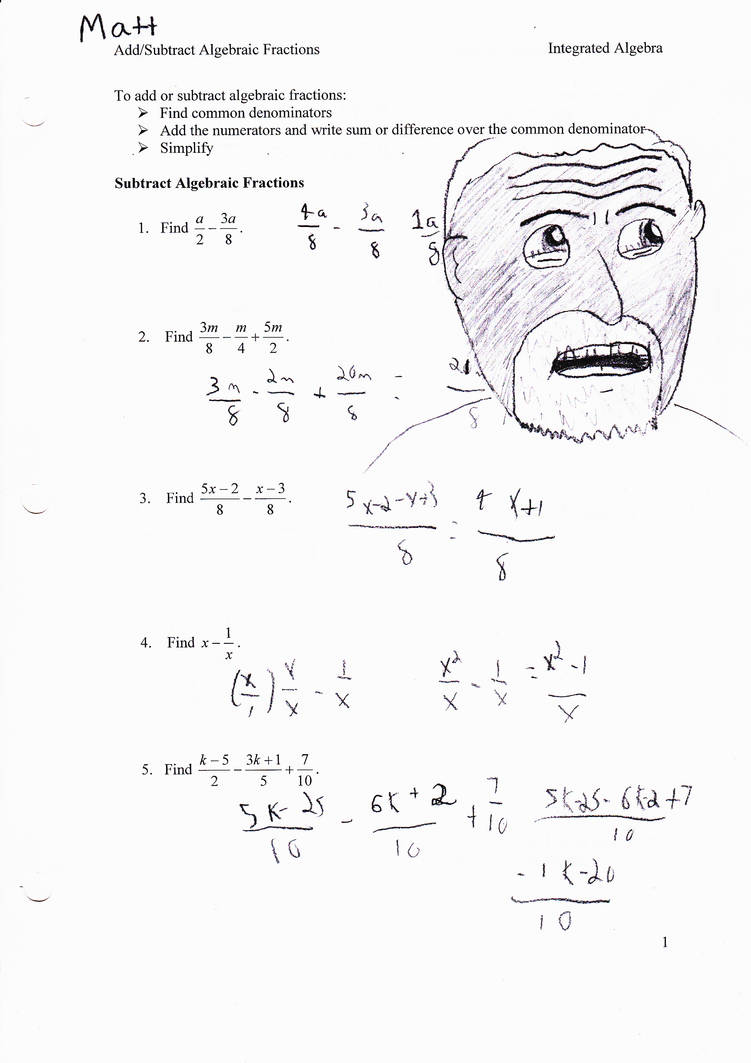 Matt
Add/Subtract Algebraic Fractions Integrated Algebra
To add or subtract algebraic fractions:
➢ Find common denominators
➢ Add the numerators and write sum or difference over the common denominator
➢ Simplify
Subtract Algebraic Fractions
1. Find a/2 - 3a/8. 4a/8 - 3a/8 1a/8
2. Find 3m/8 - m/4 + 5m/2.
3m/8 - 2m/8 + 20m/8 = /8
3. Find (5x-2)/8 - (x-3)/8. (5x-2-x+3)/8 = (4x+1)/8
4. Find x - 1/x.
(x/1) x/x - 1/x x²/x - 1/x = (x²-1)/x
5. Find (k-5)/2 - (3k+1)/5 + 7/10.
(5k-25)/10 - (6k+2)/10 + 7/10 (5k-25-6k-2+7)/10
(-1k-20)/10
1